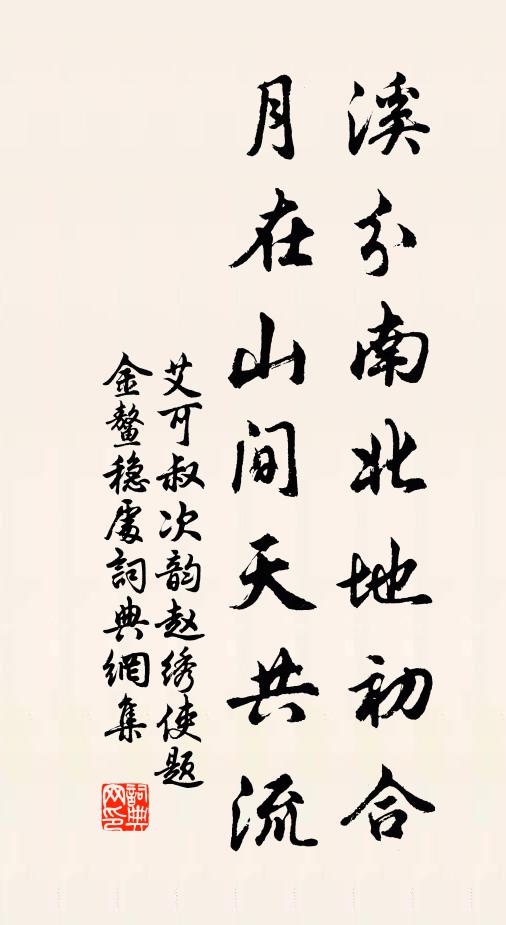 溪分南北地初合
月在山间天共流
艾可叔次韵赵绣使题
金鳌稳處詞典網集
詞典网印